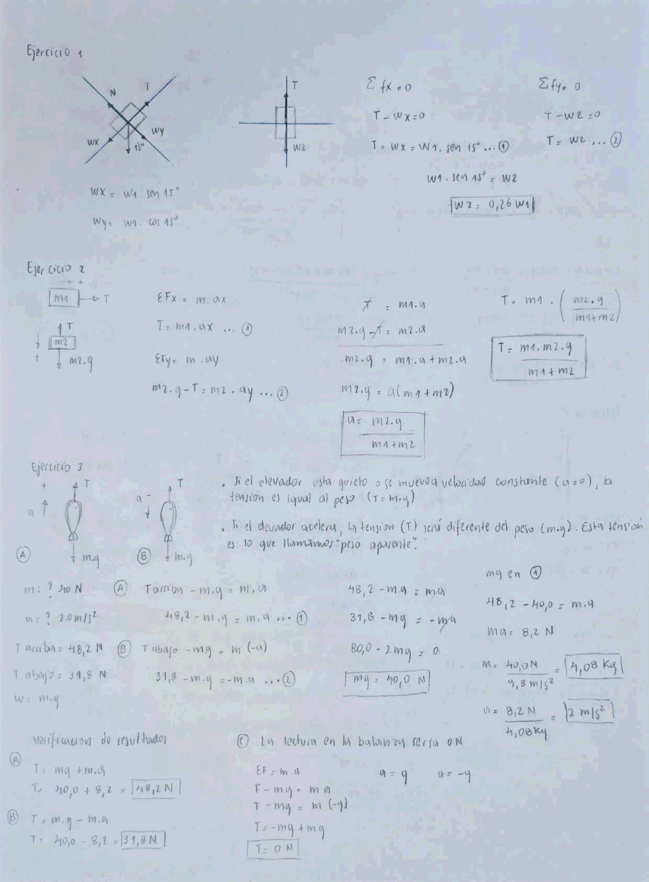 Ejercicio 1
N T
Wx Wy
15°
Wx = W1. sen 15°
Wy = W1. cos 15°
T
W2
Σfx = 0
T - Wx = 0
T = Wx = W1. sen 15° ... ①
W1. sen 15° = W2
W2 = 0,26 W1
Σfy = 0
T - W2 = 0
T = W2 ... ②
Ejercicio 2
m1 T
T
m2
+ m2.g
ΣFx = m.ax
T = m1.ax ... ①
ΣFy = m.ay
m2.g - T = m2.ay ... ②
T = m1.a
m2.g - T = m2.a
m2.g = m1.a + m2.a
m2.g = a(m1+m2)
a = m2.g
m1+m2
T = m1 . (m2.g
m1+m2)
T = m1.m2.g
m1+m2
Ejercicio 3
+ T
a
Ⓐ m.g
a - T
Ⓑ m.g
• Si el elevador esta quieto o se mueve a velocidad constante (a=0), la
tensión es igual al peso (T=m.g)
• Si el elevador acelera, la tension (T) será diferente del peso (m.g). Esta tensión
es lo que llamamos "peso aparente".
m: ? 40 N
a = ? 2.0 m/s²
T arriba = 48,2 N
T abajo = 31,8 N
w = m.g
Ⓐ T arriba - m.g = m.a
48,2 - m.g = m.a ... ①
Ⓑ T abajo - mg = m (-a)
31,8 - m.g = -m.a ... ②
48,2 - mg = ma
31,8 - mg = -ma
80,0 - 2mg = 0
mg = 40,0 N
mg en ①
48,2 - 40,0 = m.a
ma = 8,2 N
m = 40,0 N = 4,08 Kg
9,8 m/s²
a = 8,2 N = 2 m/s²
4,08 Kg
Verificacion de resultados
Ⓐ
T = mg + m.a
T = 40,0 + 8,2 = 48,2 N
Ⓑ T = m.g - m.a
T = 40,0 - 8,2 = 31,8 N
Ⓒ La lectura en la balanza seria 0 N
ΣF = m.a a = g a = -g
T - mg = ma
T - mg = m (-g)
T = -mg + mg
T = 0 N